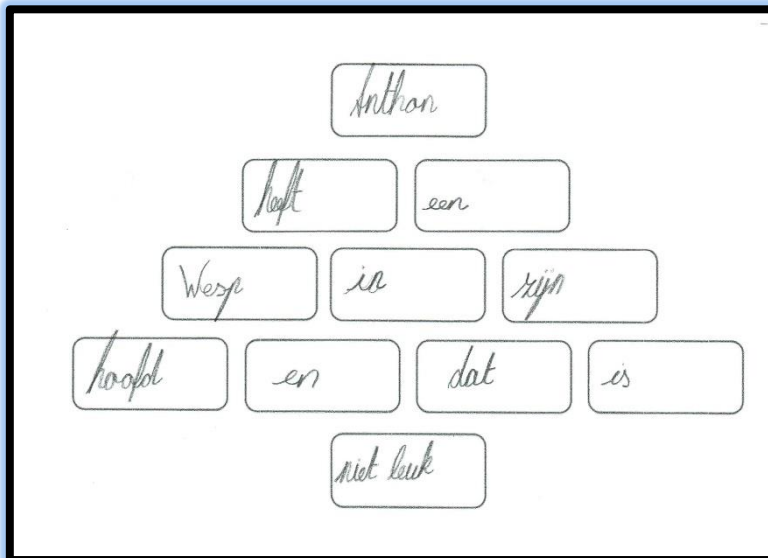 Anthon
heeft een
Wesp in zijn
hoofd en dat is
niet leuk